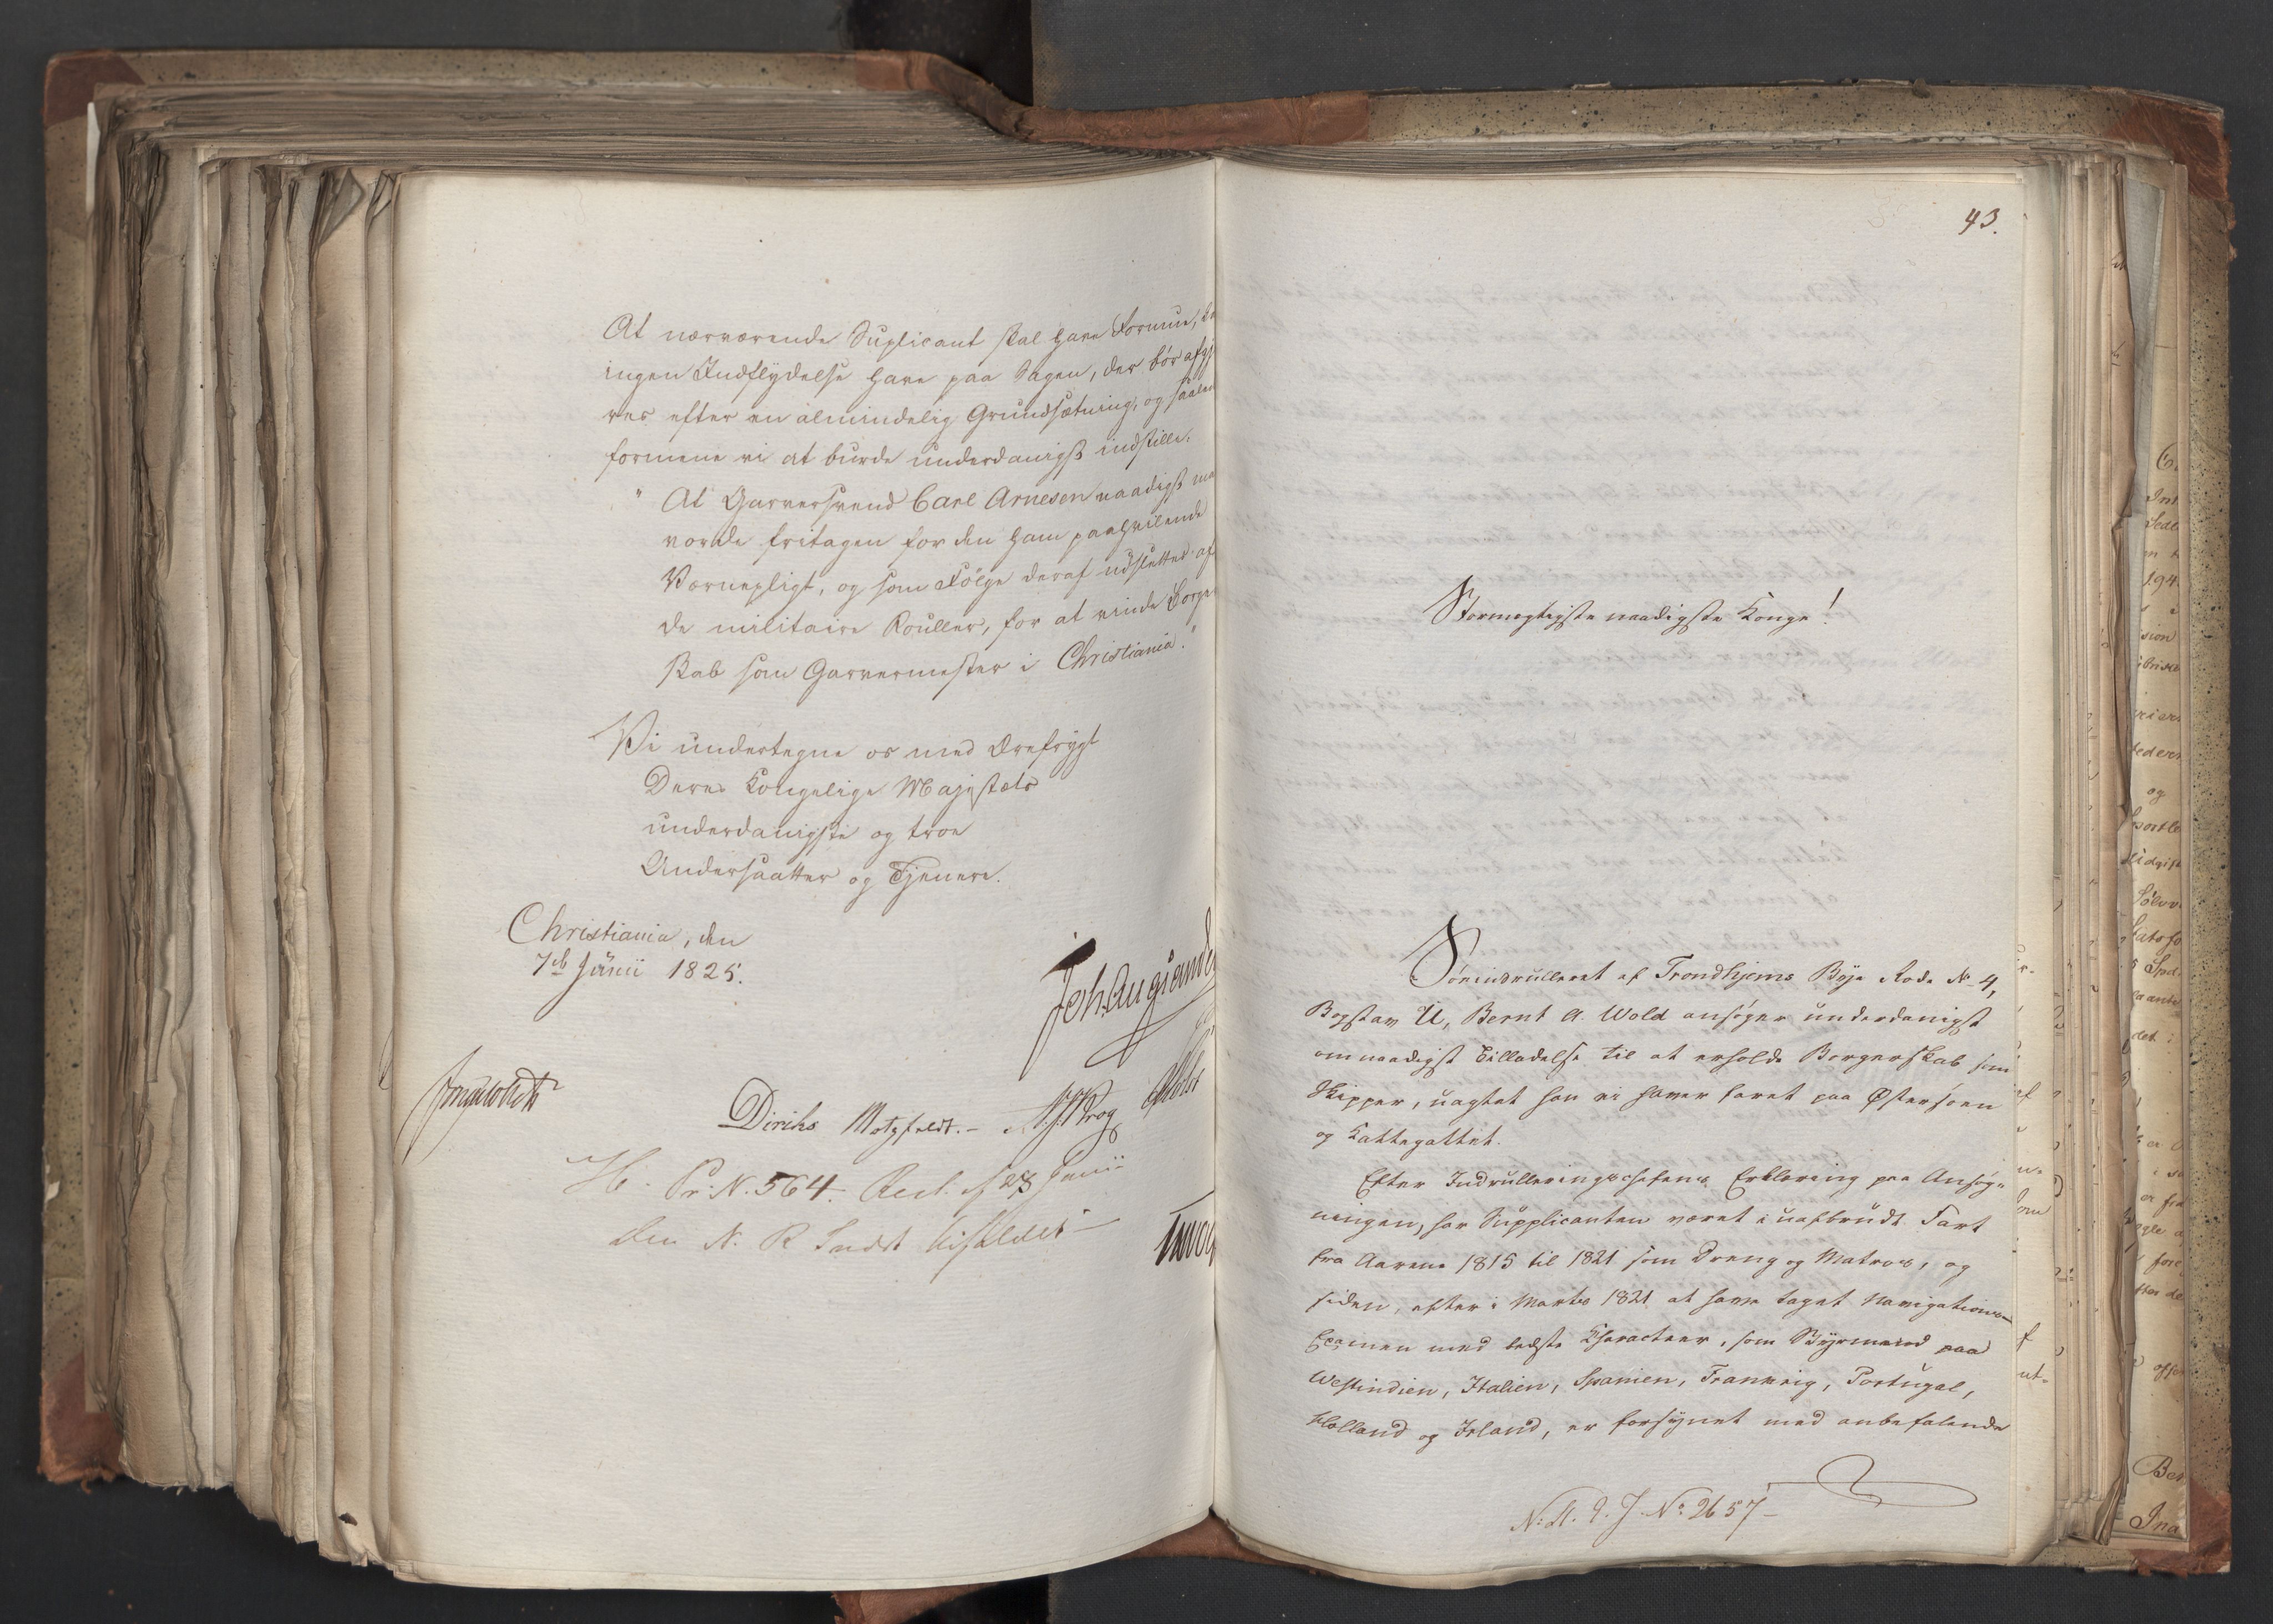 At nærværende Suplicant skal have Formue,
ingen Indflydelse have paa Sagen, der bør afgj
res efter en almindelig Grundsætning, og saaled
formene vi at burde underdanigst indstille:
" At Garversvend Carl Arnesen naadigst maa
vorde fritagen for den ham paahvilende
Værnepligt, og som Følge deraf udslettes af
de militaire Rouller, for at vinde Borger
skab som Garvermester i Christiania."
Vi undertegne os med Ærefrygt
Deres Kongelige Majestæts
underdanigste og troe
Undersaatter og Tjenere.
Christiania, den
7de Junii 1825.
Joh. Aug. Sande
Diriks Motzfeldt. - Krog Holst
H. Pr. N. 564. Resl. af 28 Junii
den N. R. Indst bifaldet
43.
Stormægtigste naadigste Konge!
Søeindrulleret af Trondhjems Bye Rode No 4,
Bogstav U, Bernt A. Wold ansøger underdanigst
om naadigst Tilladelse til at erholde Borgerskab som
Skipper, uagtet han ei haver faret paa Østersøen
og Kattegattet.
Efter Indrulleringschefens Erklæring paa Ansøg-
ningen, har Supplicanten været i uafbrudt Fart
fra Aarene 1815 til 1821 som Dreng og Matros, og
siden, efter i Marts 1821 at have taget Navigations-
Examen med bedste Characteer, som Styrmand paa
Westindien, Italien, Spanien, Frankrig, Portugal,
Holland og Irland, er forsynet med anbefalende
N: A. 9. J. No 2657